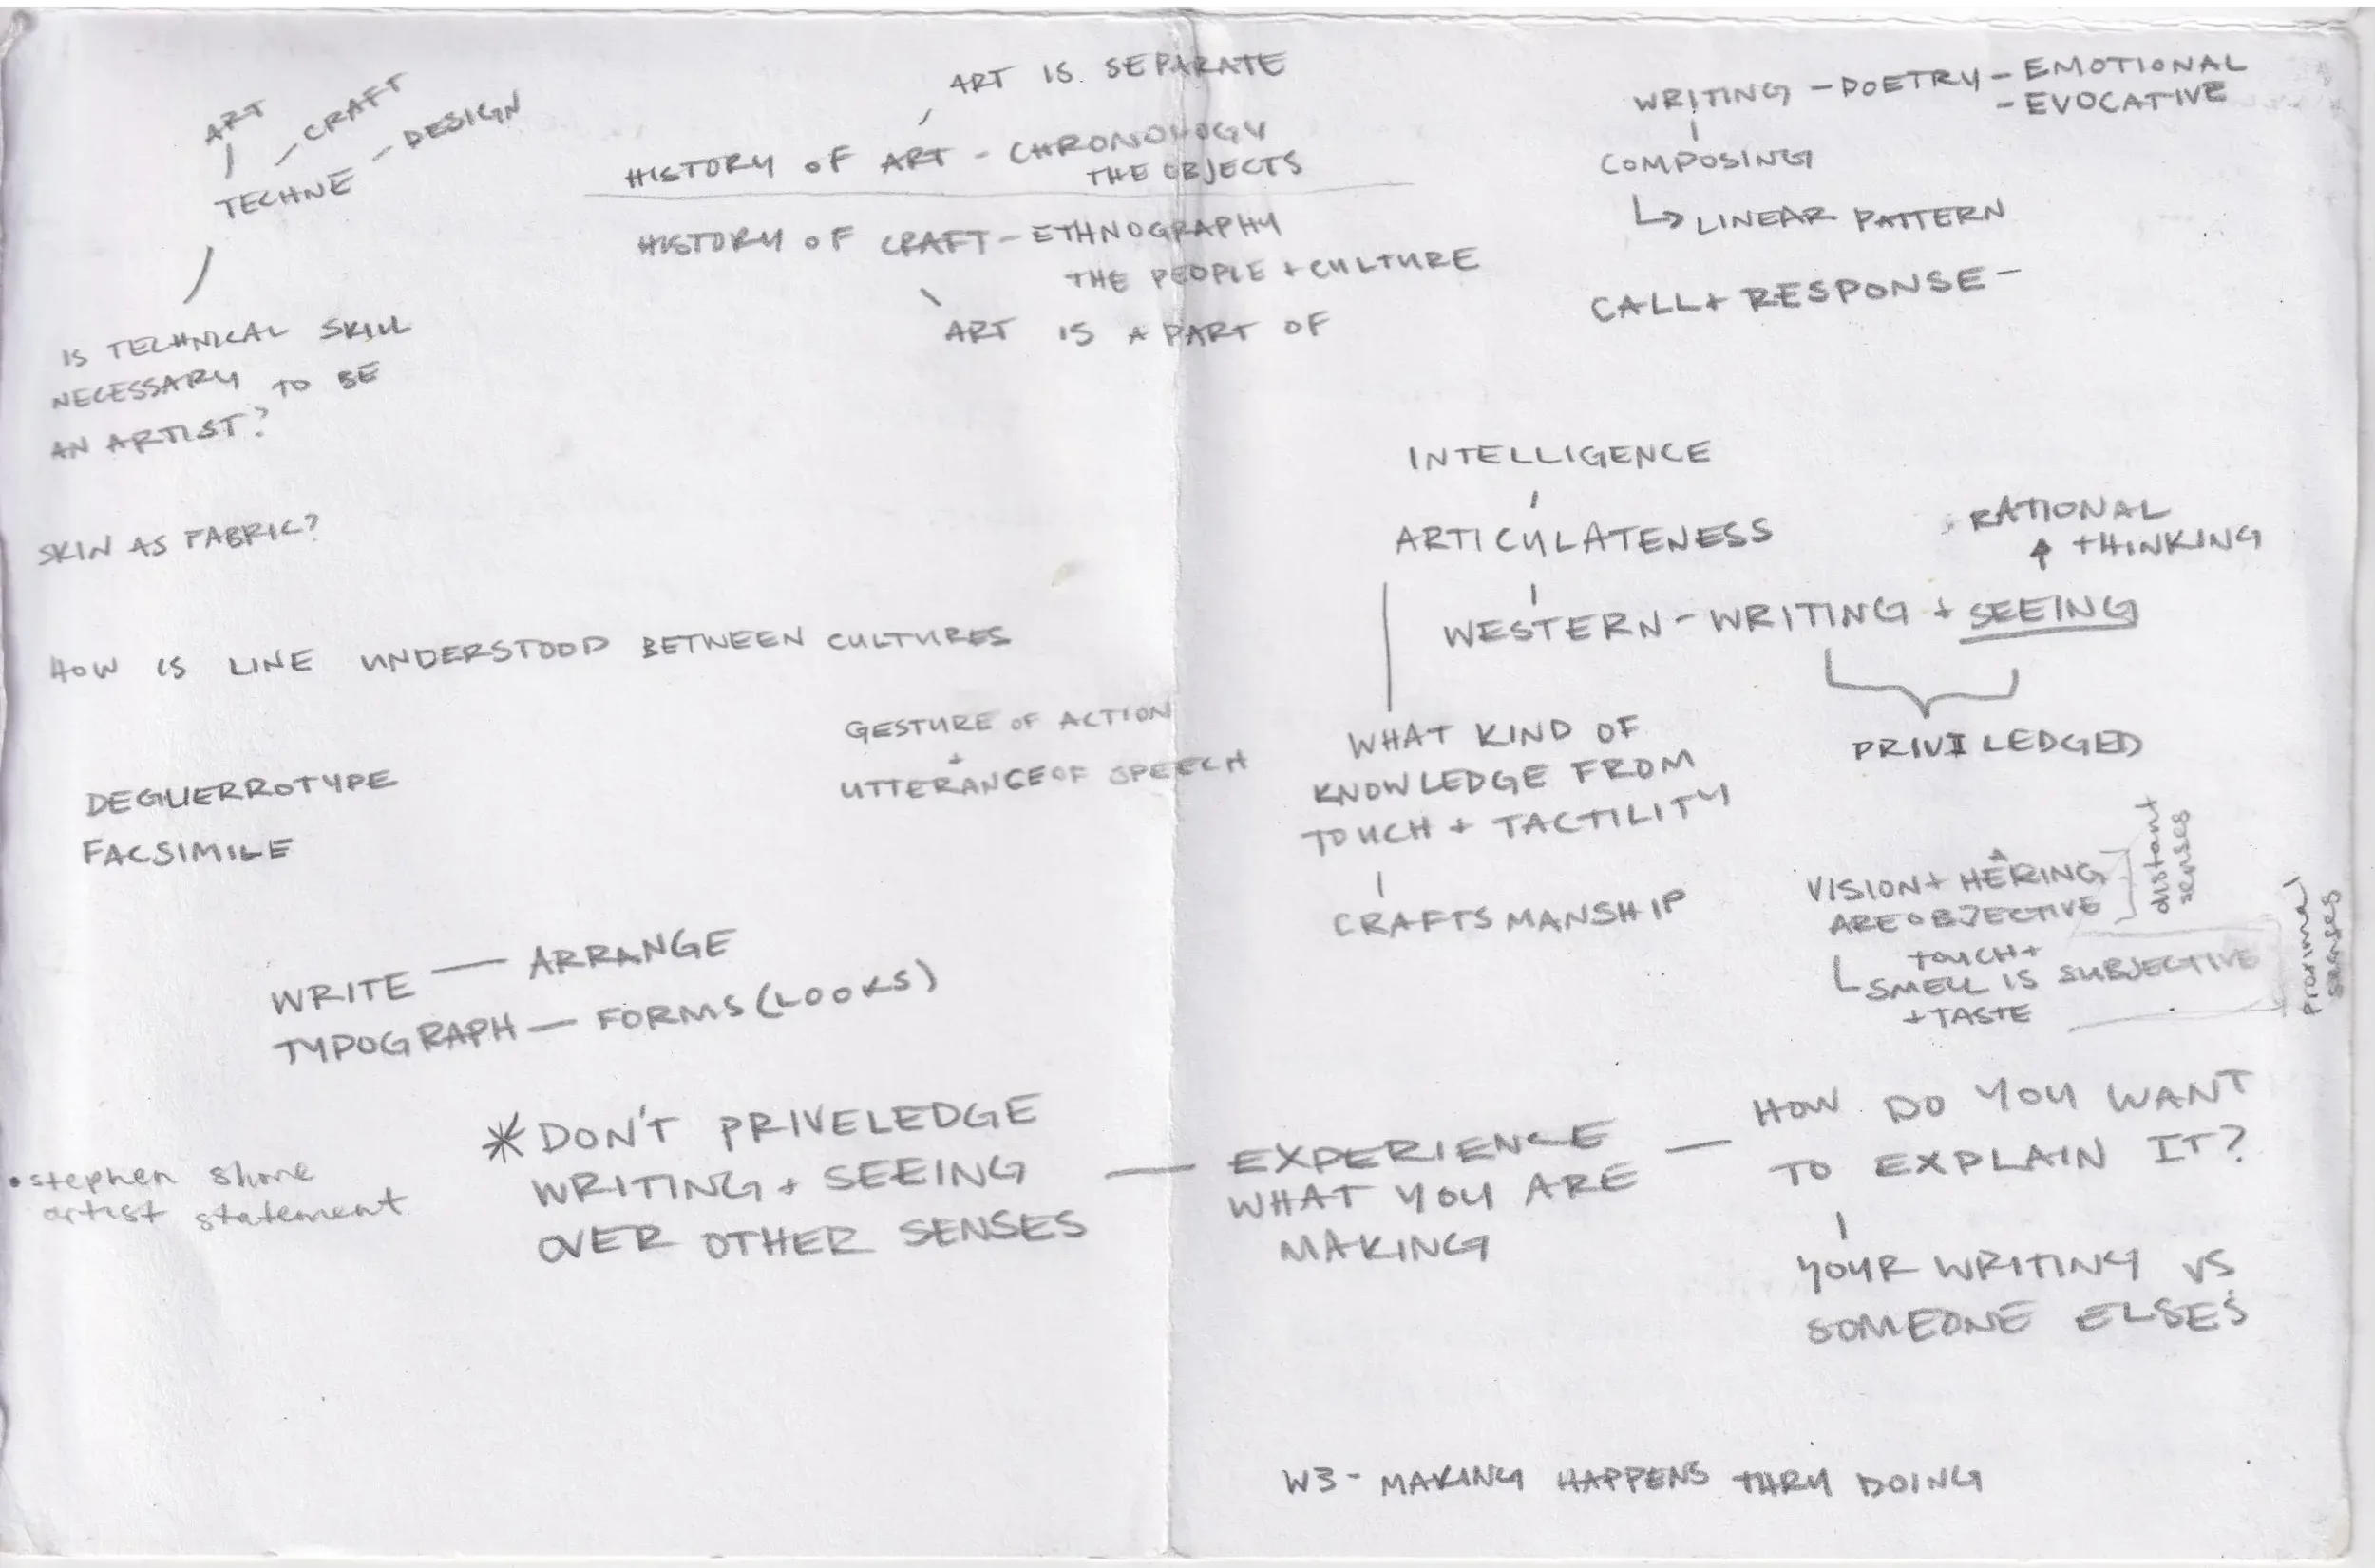 ART
- CRAFT
TECHNE - DESIGN
IS TECHNICAL SKILL
NECESSARY TO BE
AN ARTIST?
SKIN AS FABRIC?
ART IS SEPARATE
HISTORY OF ART - CHRONOLOGY
THE OBJECTS
HISTORY OF CRAFT - ETHNOGRAPHY
THE PEOPLE + CULTURE
ART IS A PART OF
WRITING - POETRY - EMOTIONAL
- EVOCATIVE
COMPOSING
↳ LINEAR PATTERN
CALL + RESPONSE -
HOW IS LINE UNDERSTOOD BETWEEN CULTURES
GESTURE OF ACTION
+
UTTERANCE OF SPEECH
DEGUERROTYPE
FACSIMILE
INTELLIGENCE
ARTICULATENESS
RATIONAL
↑ THINKING
WESTERN - WRITING + SEEING
PRIVILEDGED
WHAT KIND OF
KNOWLEDGE FROM
TOUCH + TACTILITY
CRAFTSMANSHIP
VISION + HEARING
ARE OBJECTIVE
distant
senses
TOUCH +
SMELL IS SUBJECTIVE
+ TASTE
proximal
senses
WRITE — ARRANGE
TYPOGRAPH — FORMS (LOOKS)
• stephen shore
artist statement
* DON'T PRIVELEDGE
WRITING + SEEING
OVER OTHER SENSES
— EXPERIENCE
WHAT YOU ARE
MAKING
— HOW DO YOU WANT
TO EXPLAIN IT?
YOUR WRITING VS
SOMEONE ELSE'S
W3 - MAKING HAPPENS THRU DOING